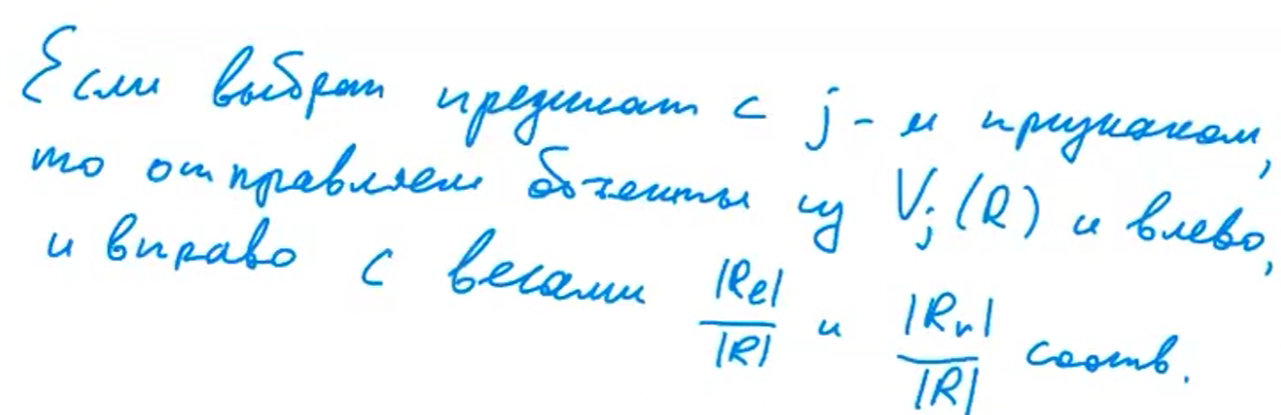 Если выбран предикат с j-м признаком,
то отправляем объекты из Vⱼ(R) и влево,
и вправо с весами |Rₑ|/|R| и |Rᵣ|/|R| соотв.